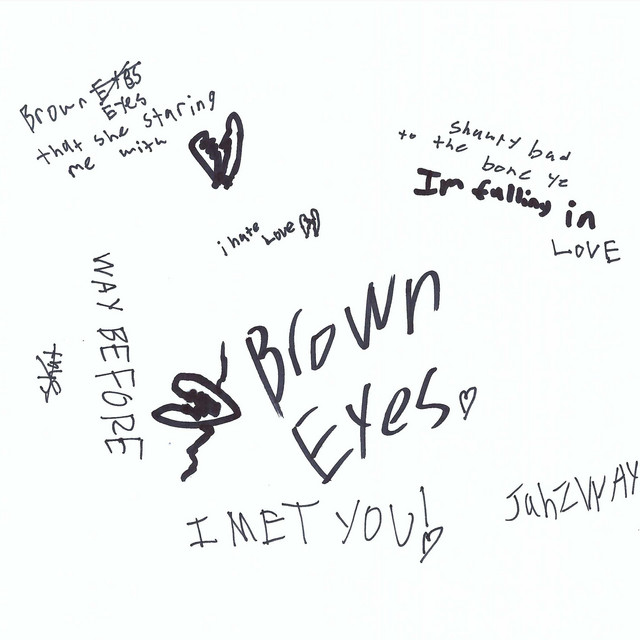 Brown
Eyes
that she staring
me with
shawty bad
to the bone ye
Im falling in
LOVE
i hate Love
WAY BEFORE
Brown
Eyes
I MET YOU!
JahZWAY